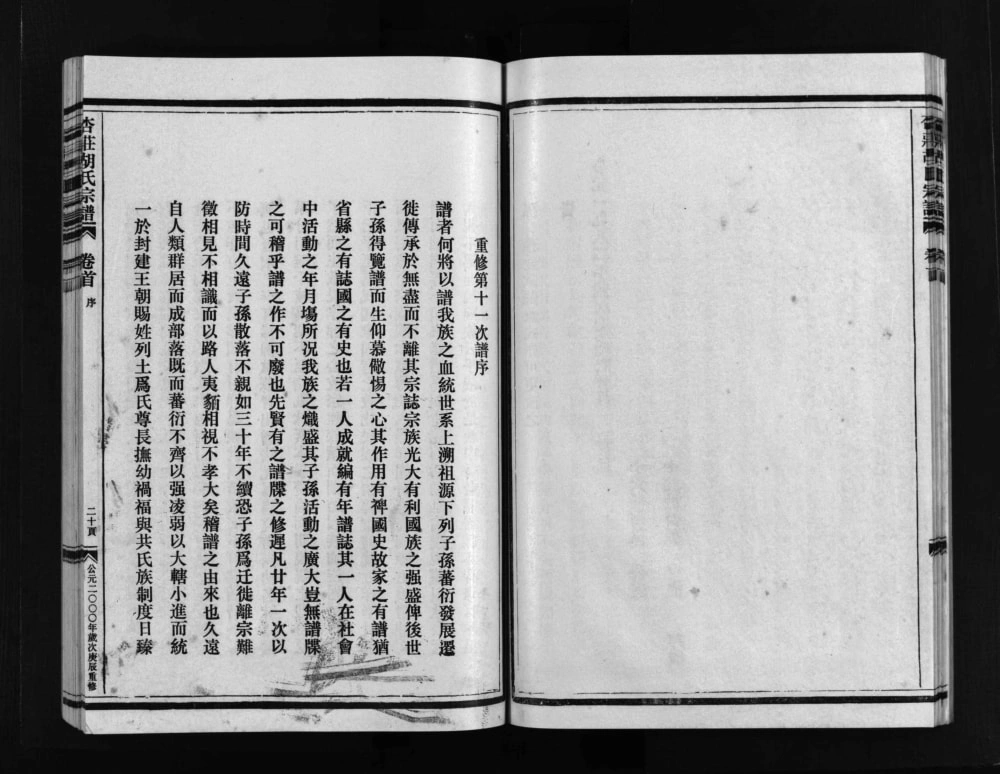 重修第十一次譜序
譜者何將以譜我族之血統世系上溯祖源下列子孫蕃衍發展遷
徙傳承於無盡而不離其宗誌宗族光大有利國族之强盛俾後世
子孫得覽譜而生仰慕儆惕之心其作用有裨國史故家之有譜猶
省縣之有誌國之有史也若一人成就編有年譜誌其一人在社會
中活動之年月塲所况我族之熾盛其子孫活動之廣大豈無譜牒
之可稽乎譜之作不可廢也先賢有之譜牒之修遲凡廿年一次以
防時間久遠子孫散落不親如三十年不續恐子孫爲迁徙離宗難
徵相見不相識而以路人夷貊相視不孝大矣稽譜之由來也久遠
自人類群居而成部落既而蕃衍不齊以强凌弱以大轄小進而統
一於封建王朝賜姓列土爲氏尊長撫幼禍福與共氏族制度日臻
杏莊胡氏宗譜
卷首
序
二十頁
公元二〇〇〇年歲次庚辰重修